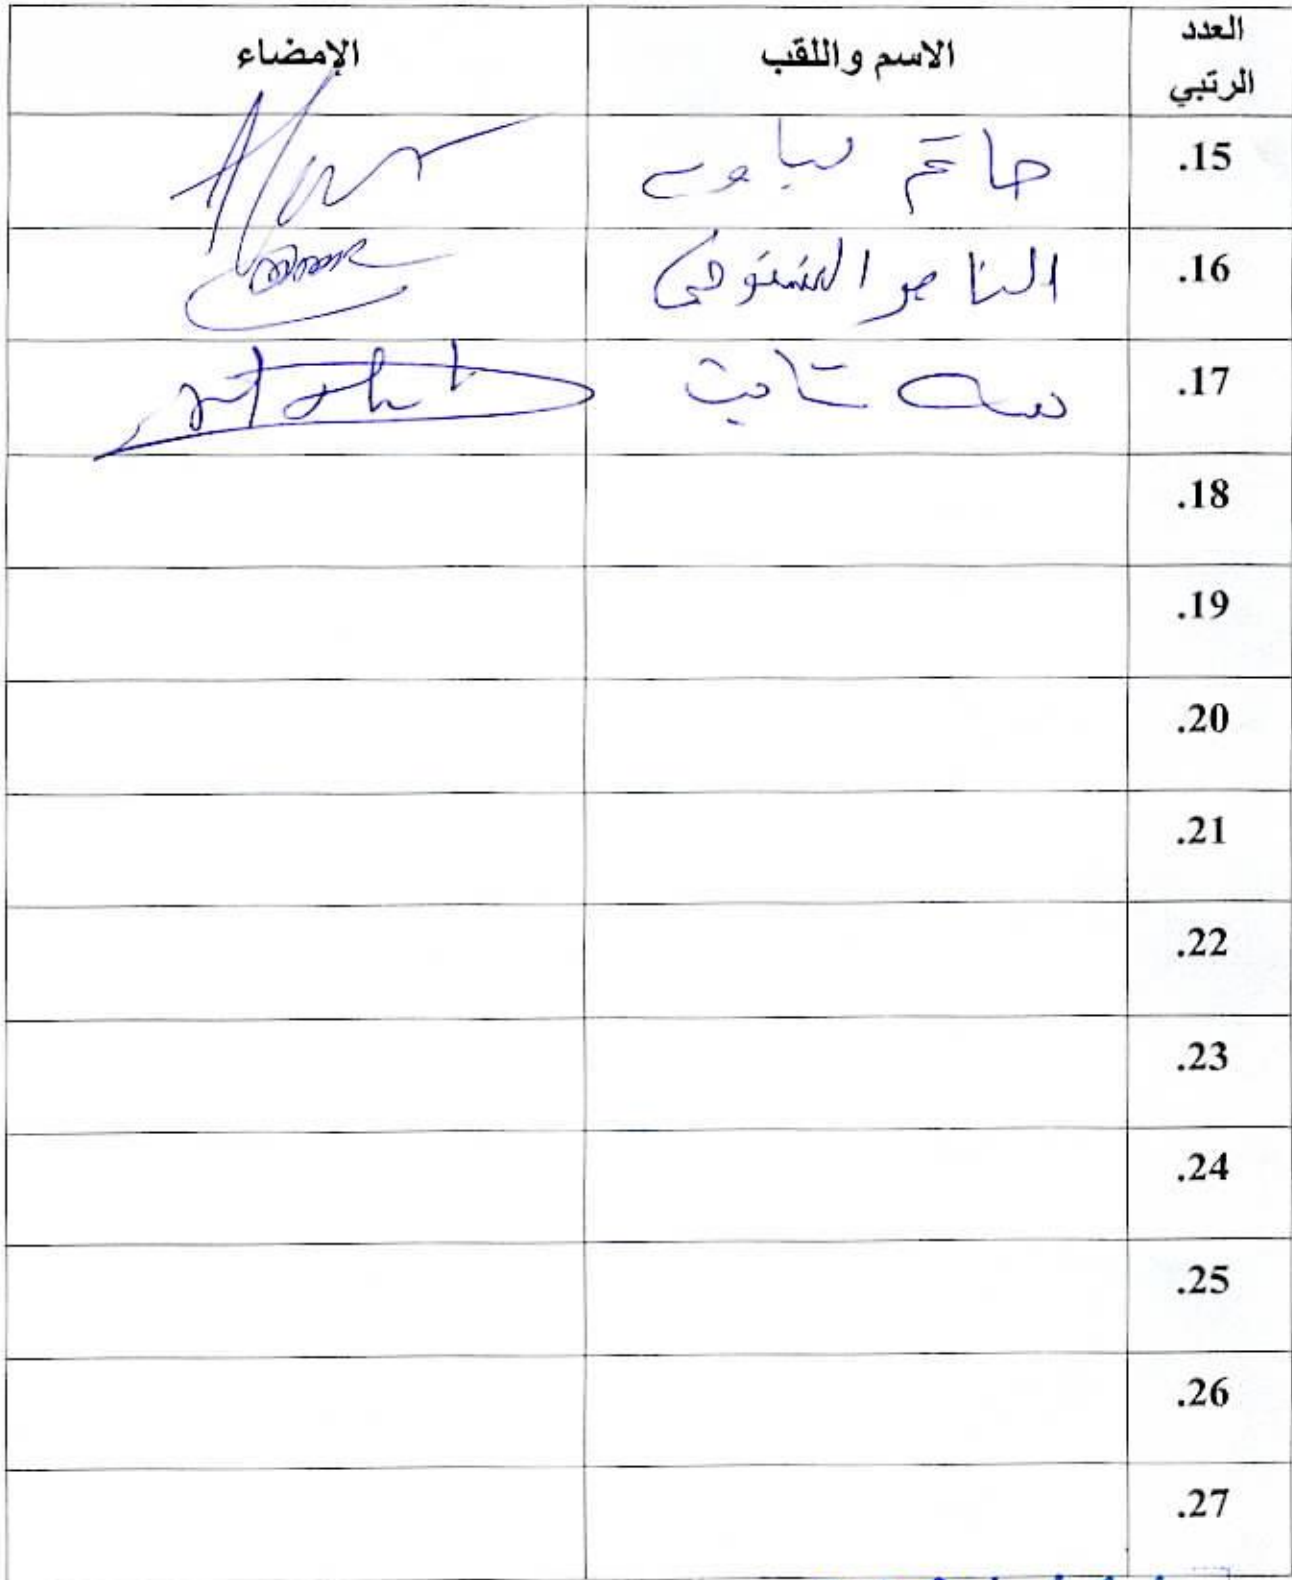 العدد الرتبي الاسم واللقب الإمضاء
.15 حاتم
.16 الناصر الشتوحي
.17 ثابت
.18
.19
.20
.21
.22
.23
.24
.25
.26
.27